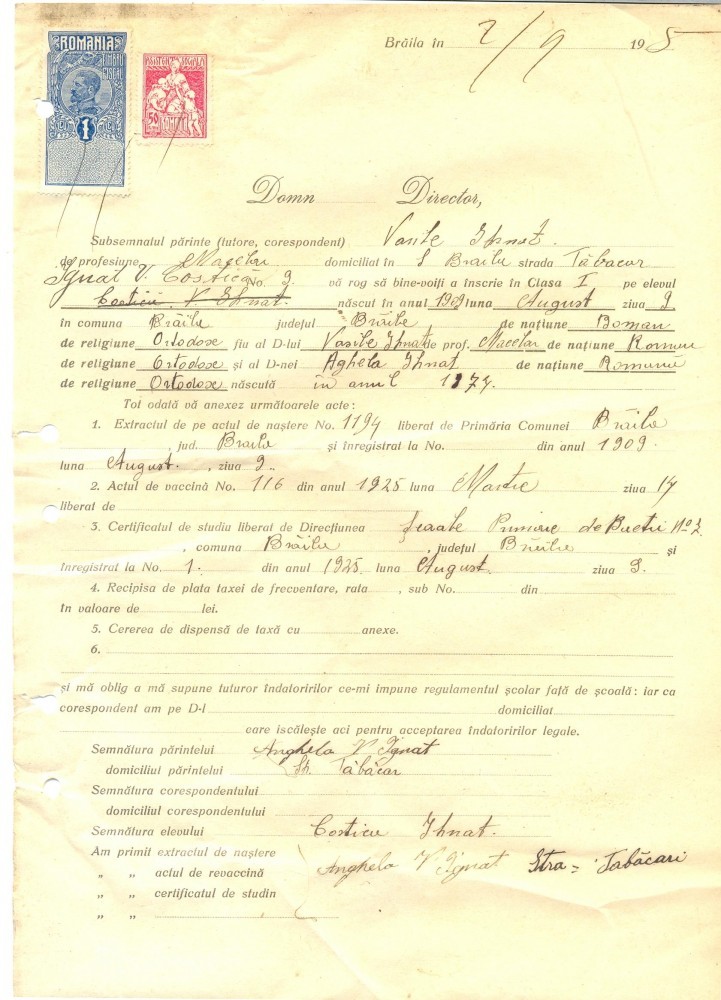 Brăila în 2/9 1925
ROMANIA
TIMBRU FISCAL
1
ASISTENȚA SOCIALA
50
ROMÂNIEI
Domn Director,
Subsemnatul părinte (tutore, corespondent) Vasile Ihnat.
de profesiune Macelar domiciliat în Braila strada Tăbacar
Ignat V. Costică No. 9 vă rog să bine-voiți a înscrie în Clasa I pe elevul
Costicu V. Ihnat. născut în anul 1909 luna August ziua 9
în comuna Brăila județul Brăila de națiune Roman
de religiune Ortodoxe fiu al D-lui Vasile Ihnat de prof. Macelar de națiune Roman
de religiune Ortodoxe și al D-nei Aghela Ihnat de națiune Romună
de religiune Ortodoxe născută în anul 1874.
Tot odată vă anexez următoarele acte :
1. Extractul de pe actul de naștere No. 1194 liberat de Primăria Comunei Brăila
, jud. Braila și înregistrat la No. din anul 1909
luna August. , ziua 9..
2. Actul de vaccină No. 116 din anul 1925 luna Martie ziua 14
liberat de
3. Certificatul de studiu liberat de Direcțiunea Școale Primare de Baeti No 2
, comuna Brăila , județul Brăila și
înregistrat la No. 1. din anul 1925 luna August. ziua 9.
4. Recipisa de plata taxei de frecventare, rata , sub No. din
în valoare de lei.
5. Cererea de dispensă de taxă cu anexe.
6.
și mă oblig a mă supune tuturor îndatoririlor ce-mi impune regulamentul școlar față de școală : iar ca
corespondent am pe D-l domiciliat
care iscălește aci pentru acceptarea îndatoririlor legale.
Semnătura părintelui Anghela V Ignat
domiciliul părintelui St. Tăbăcar
Semnătura corespondentului
domiciliul corespondentului
Semnătura elevului Costicu Ihnat.
Am primit extractul de naștere Anghela V Ignat Stra= Tabăcari
„ „ actul de revaccină
„ „ certificatul de studin
„ „